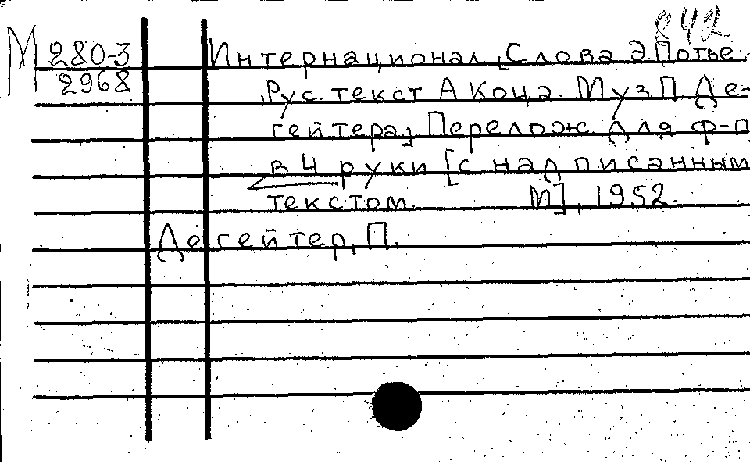 842
М 280-3
2968
Интернационал. [Слова Э. Потье.
Рус. текст А Коца. Муз П Де-
гейтера] Перелож. для ф-п
в 4 руки [с надписанным
текстом. М], 1952.
Дегейтер, П.